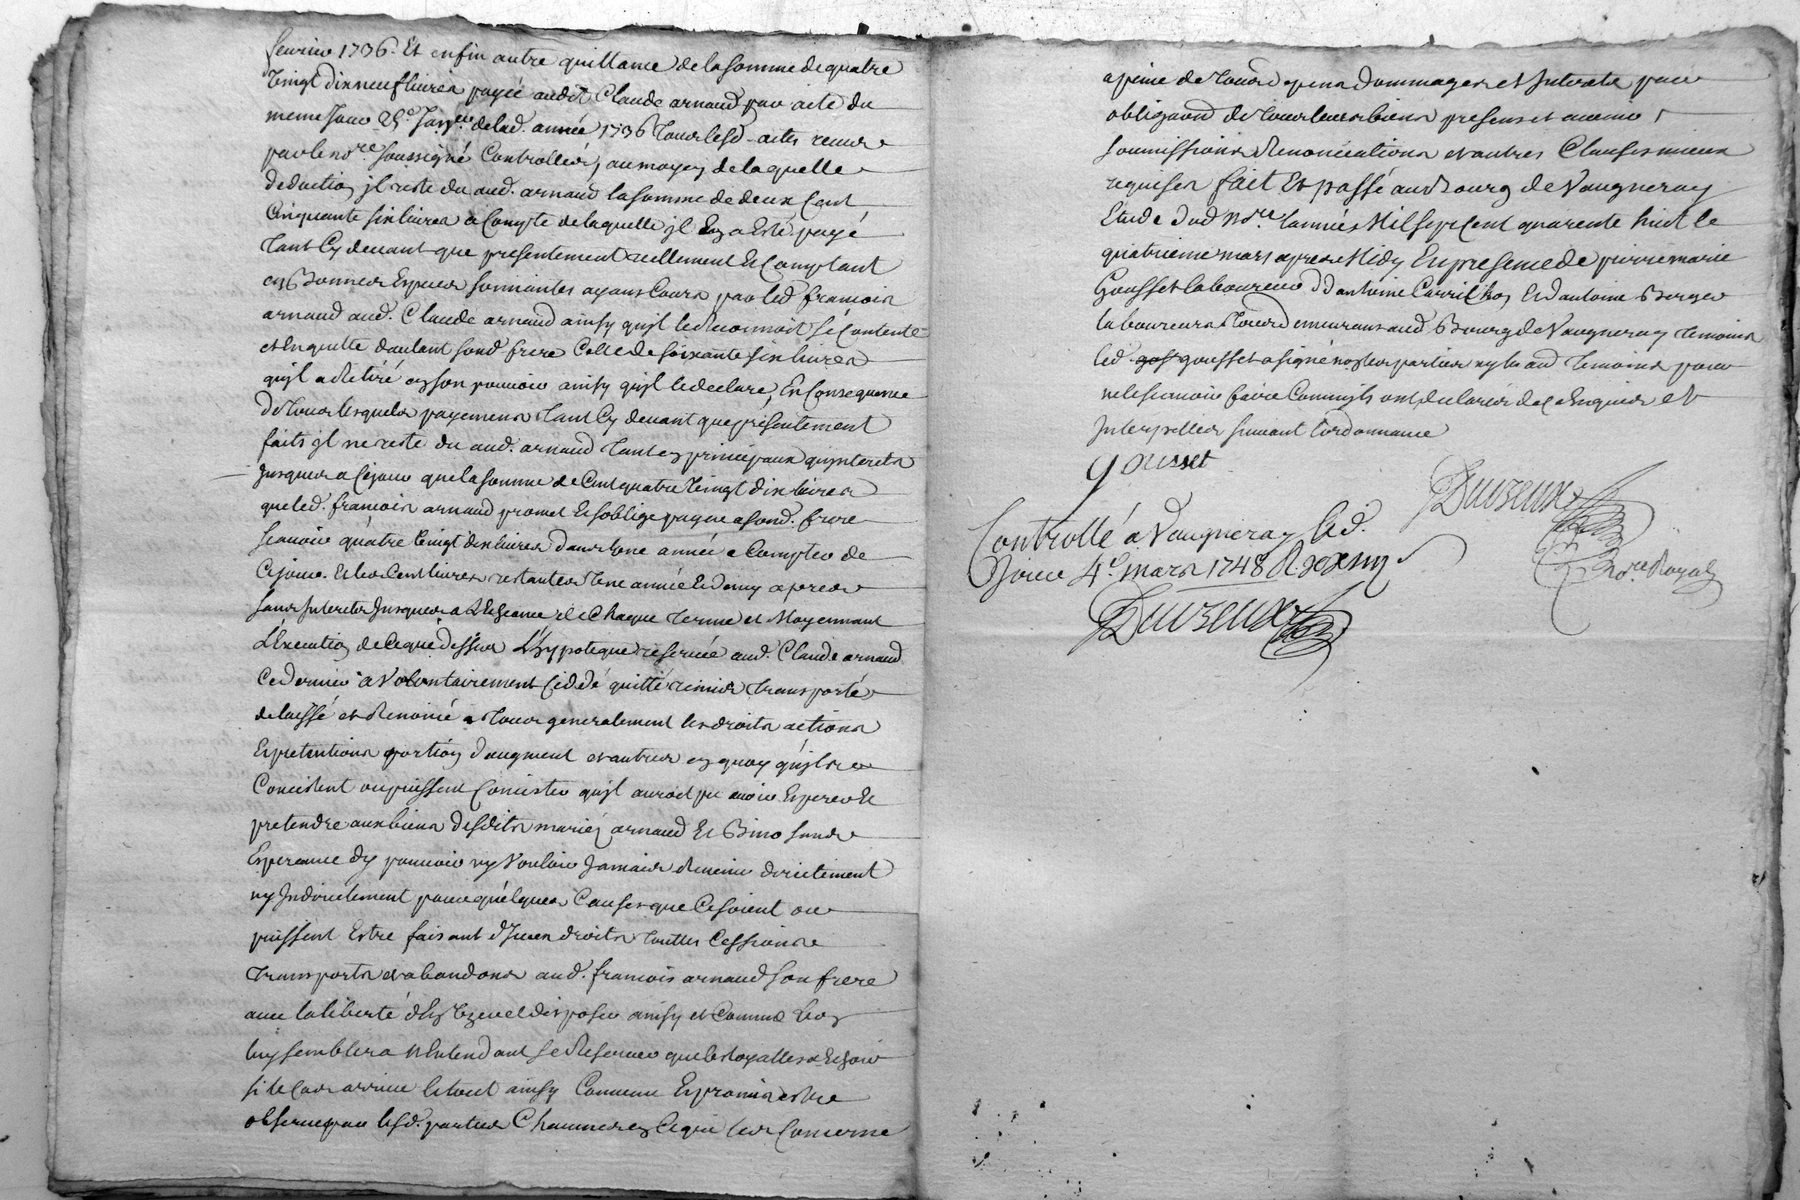 fevrier 1736. Et enfin autre quittance de la somme de quatre
vingt dix neuf livres payée audit Claude arnaud par acte du
meme jour 25e Janv. de lad. année 1736 tous lesd. actes recus
par le nore. soussigné Controllés, au moyen de laquelle
deduction jl reste du aud. arnaud la somme de deux Cent
Cinquante six livres a Compte de laquelle jl En a Esté payé
tant Cy devant que presentement reellement Et Comptant
en Bonnes Especes sonnantes ayans Cours par led. francois
arnaud aud. Claude arnaud ainsy qu'jl le Reconnoit se Contente
et En quitte d'autant sond. frere Celle de soixante six livres
qu'jl a Retiré en son pouvoir ainsy qu'jl le declare, En Consequence
de tous lesquels payemens tant Cy devant que présentement
faits jl ne reste du aud. arnaud tant en principaux qu'jnterets
jusques a Ce jour que la somme de Cent quatre vingt dix livres
que led. francois arnaud promet Et s'oblige payer a sond. frere
scavoir quatre vingt dix livres dans une année a Compter de
Ce jour. Et les Cent livres restantes une année Et demy apres
sans jnterets jusques a L'Echeance de Chaque terme et Moyennant
L'Execution de Ce que dessus L'hypoteque reservée aud. Claude arnaud
Ce dernier a volontairement Cedé quitté remis transporté
delaissé et Renoncé a tous generalement les droits actions
Et pretentions portion d'augment et autres en quoy qu'jls
Concistent ou puissent Concister qu'jl auroit pu avoir Esperer Et
pretendre aux biens desdits mariés arnaud Et Bino sans
Esperance d'y pouvoir ny vouloir jamais Revenir directement
ny jndirectement pour quélques Causes que Ce soient ou
puissent Estre faisant d'jceux droits touttes Cessions
transports et abandons aud. francois arnaud son frere
avec la liberté d'En user et disposer ainsy et Comme bon
luy semblera N'Entendant se Reserver que les loyalles Echoir
si le Cas arrive le tout ainsy Convenu Et promis estre
observé par lesd. parties Chacunes en Ce qui les Concerne
a peine de tous depens dommages et jnterets par
obligaon. de tous leurs biens presens et avenir,
soumissions Renonciations et autres Clauses mieux
requises fait Et passé au Bourg de Vaugneray
Etude dud. Nore. l'année Mil sept Cent quarente huit le
quatrieme mars apres Midy En presence de pierre marie
Gousset laboureur d'antoine Et d'antoine Berger
laboureurs tous demeurans aud. Bourg de Vaugneray temoins
led. gousset a signé non les parties ny led. temoins pour
ne le scavoir faire Comm'jls ont declarés de Ce Enquis et
jnterpellés suivant l'ordonnance
gousset
Duizeux
Nore. Royal
Controllé a Vaugneray led.
jour 4e. mars 1748 R
Duizeux